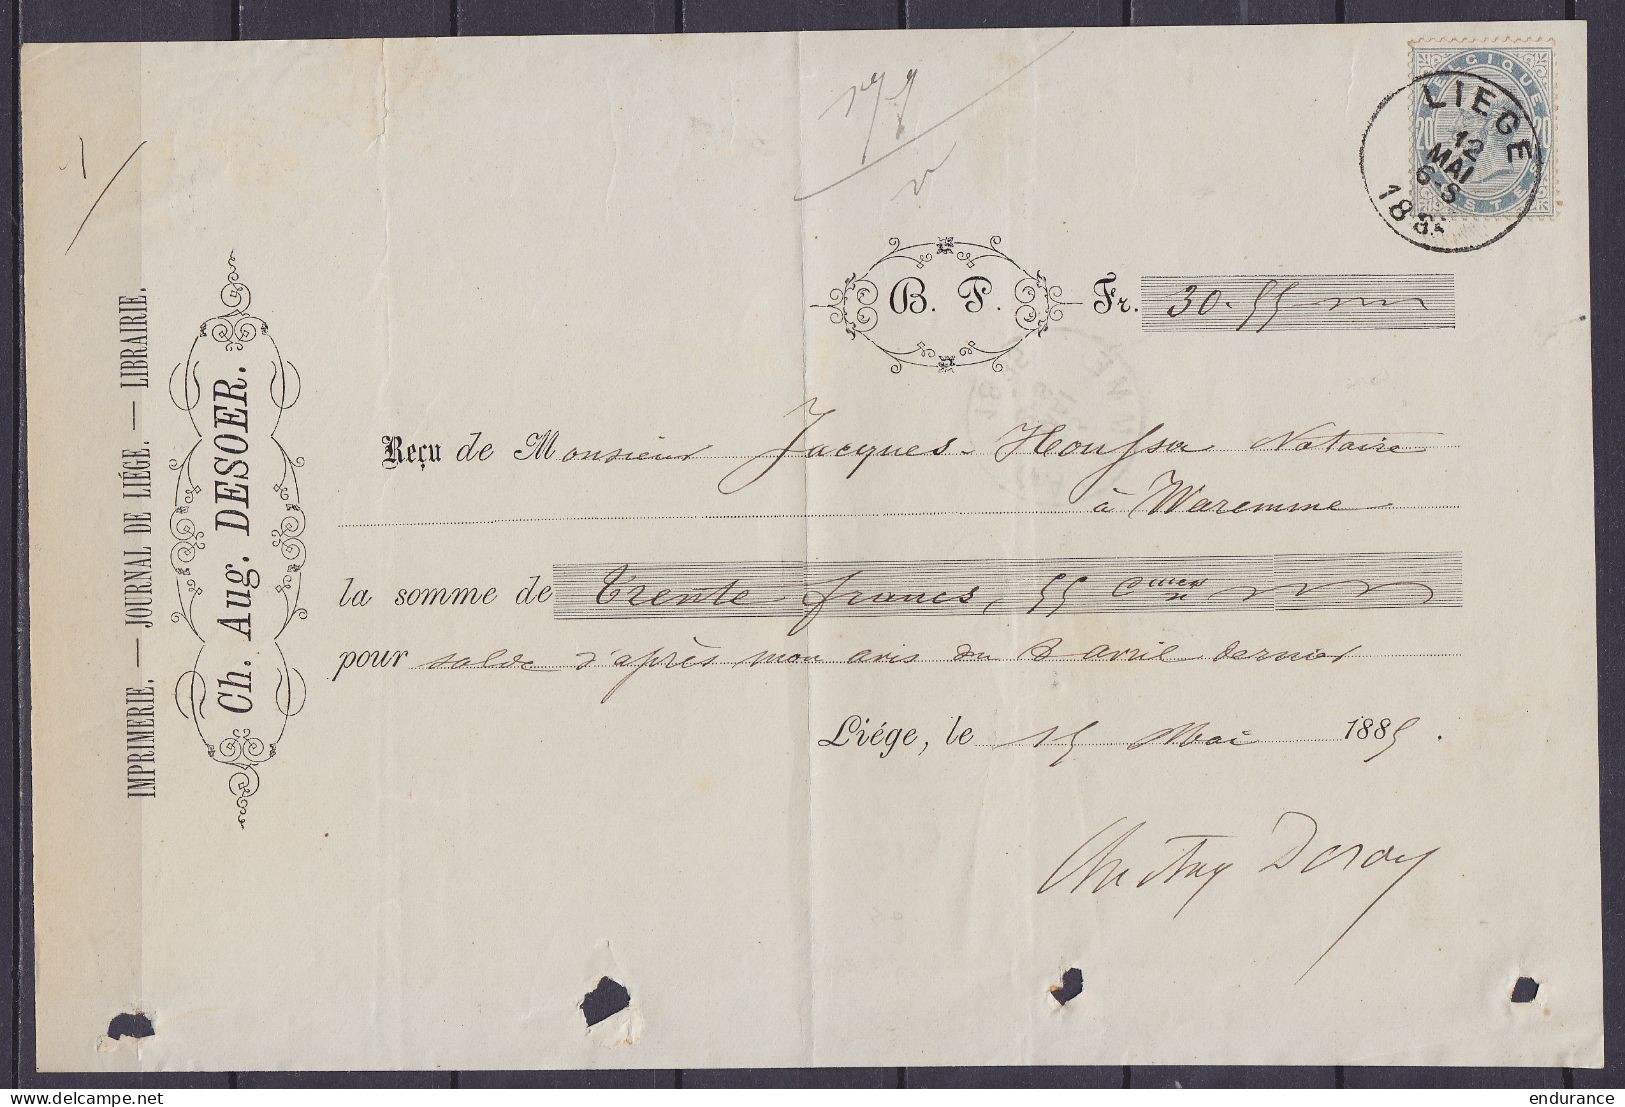 BELGIQUE
20 20
POSTES
LIEGE
12
MAI
6-S
188
B. P. Fr. 30.55
Reçu de Monsieur Jacques Notaire
à Waremme
la somme de Trente francs, 55
pour solde d'après mon avis du avril dernier
Liége, le 15 Mai 1885.
IMPRIMERIE. — JOURNAL DE LIÉGE. — LIBRAIRIE.
Ch. Aug. DESOER.
delcampe.net
endurance